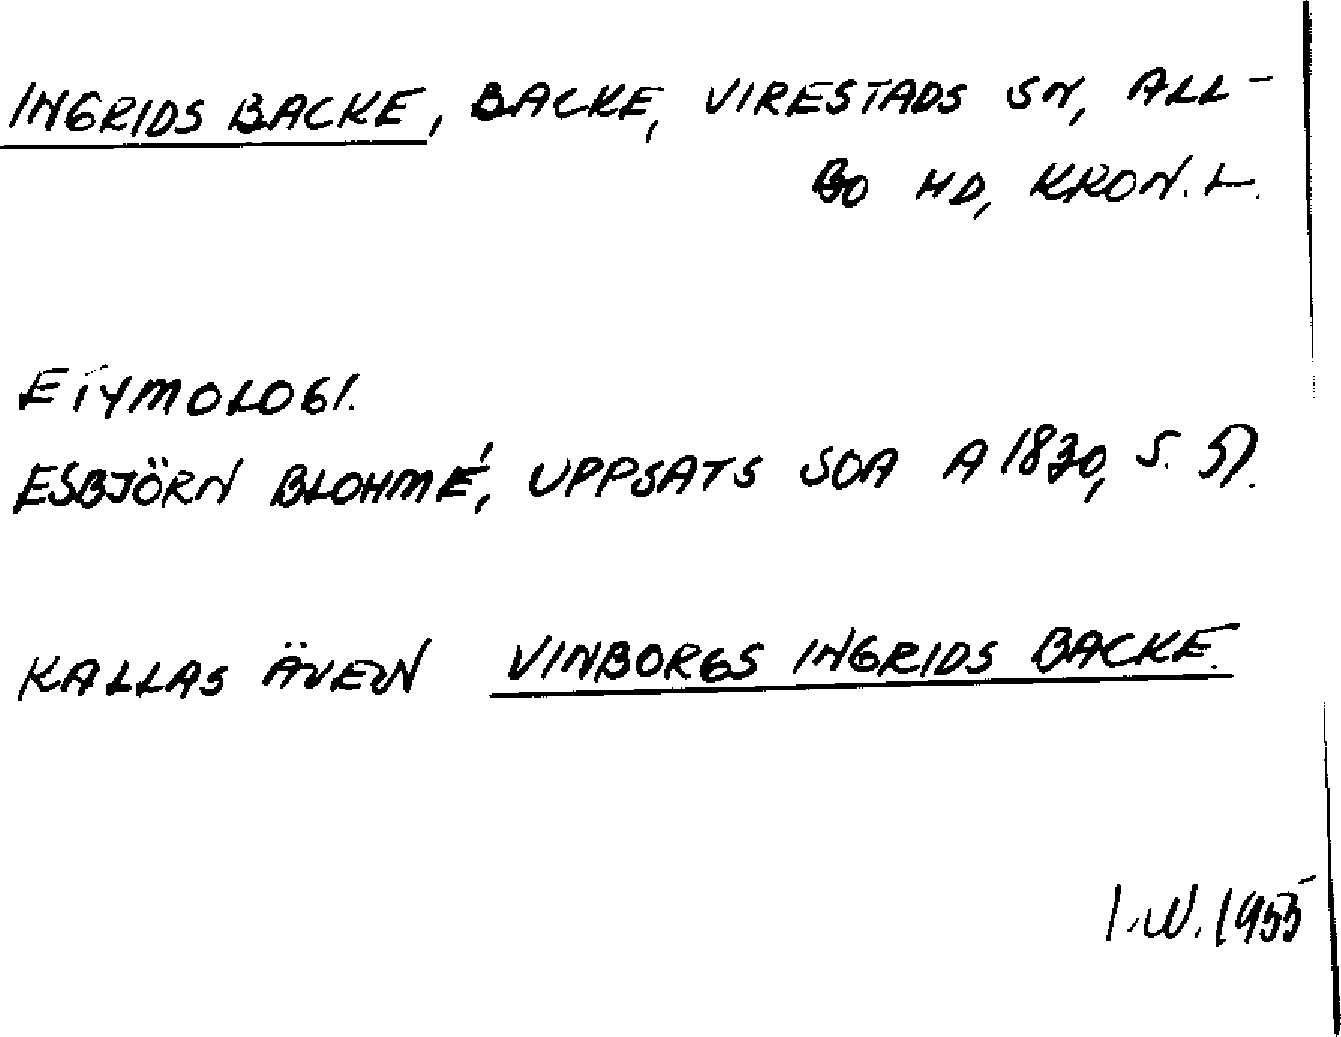 INGRIDS BACKE, BACKE, VIRESTADS SN, ALL-
BO HD, KRON. L.
ETYMOLOGI.
ESBJÖRN BLOHMÉ, UPPSATS SOA A 1830, S. 57.
KALLAS ÄVEN VINBORGS INGRIDS BACKE.
I.W. 1955